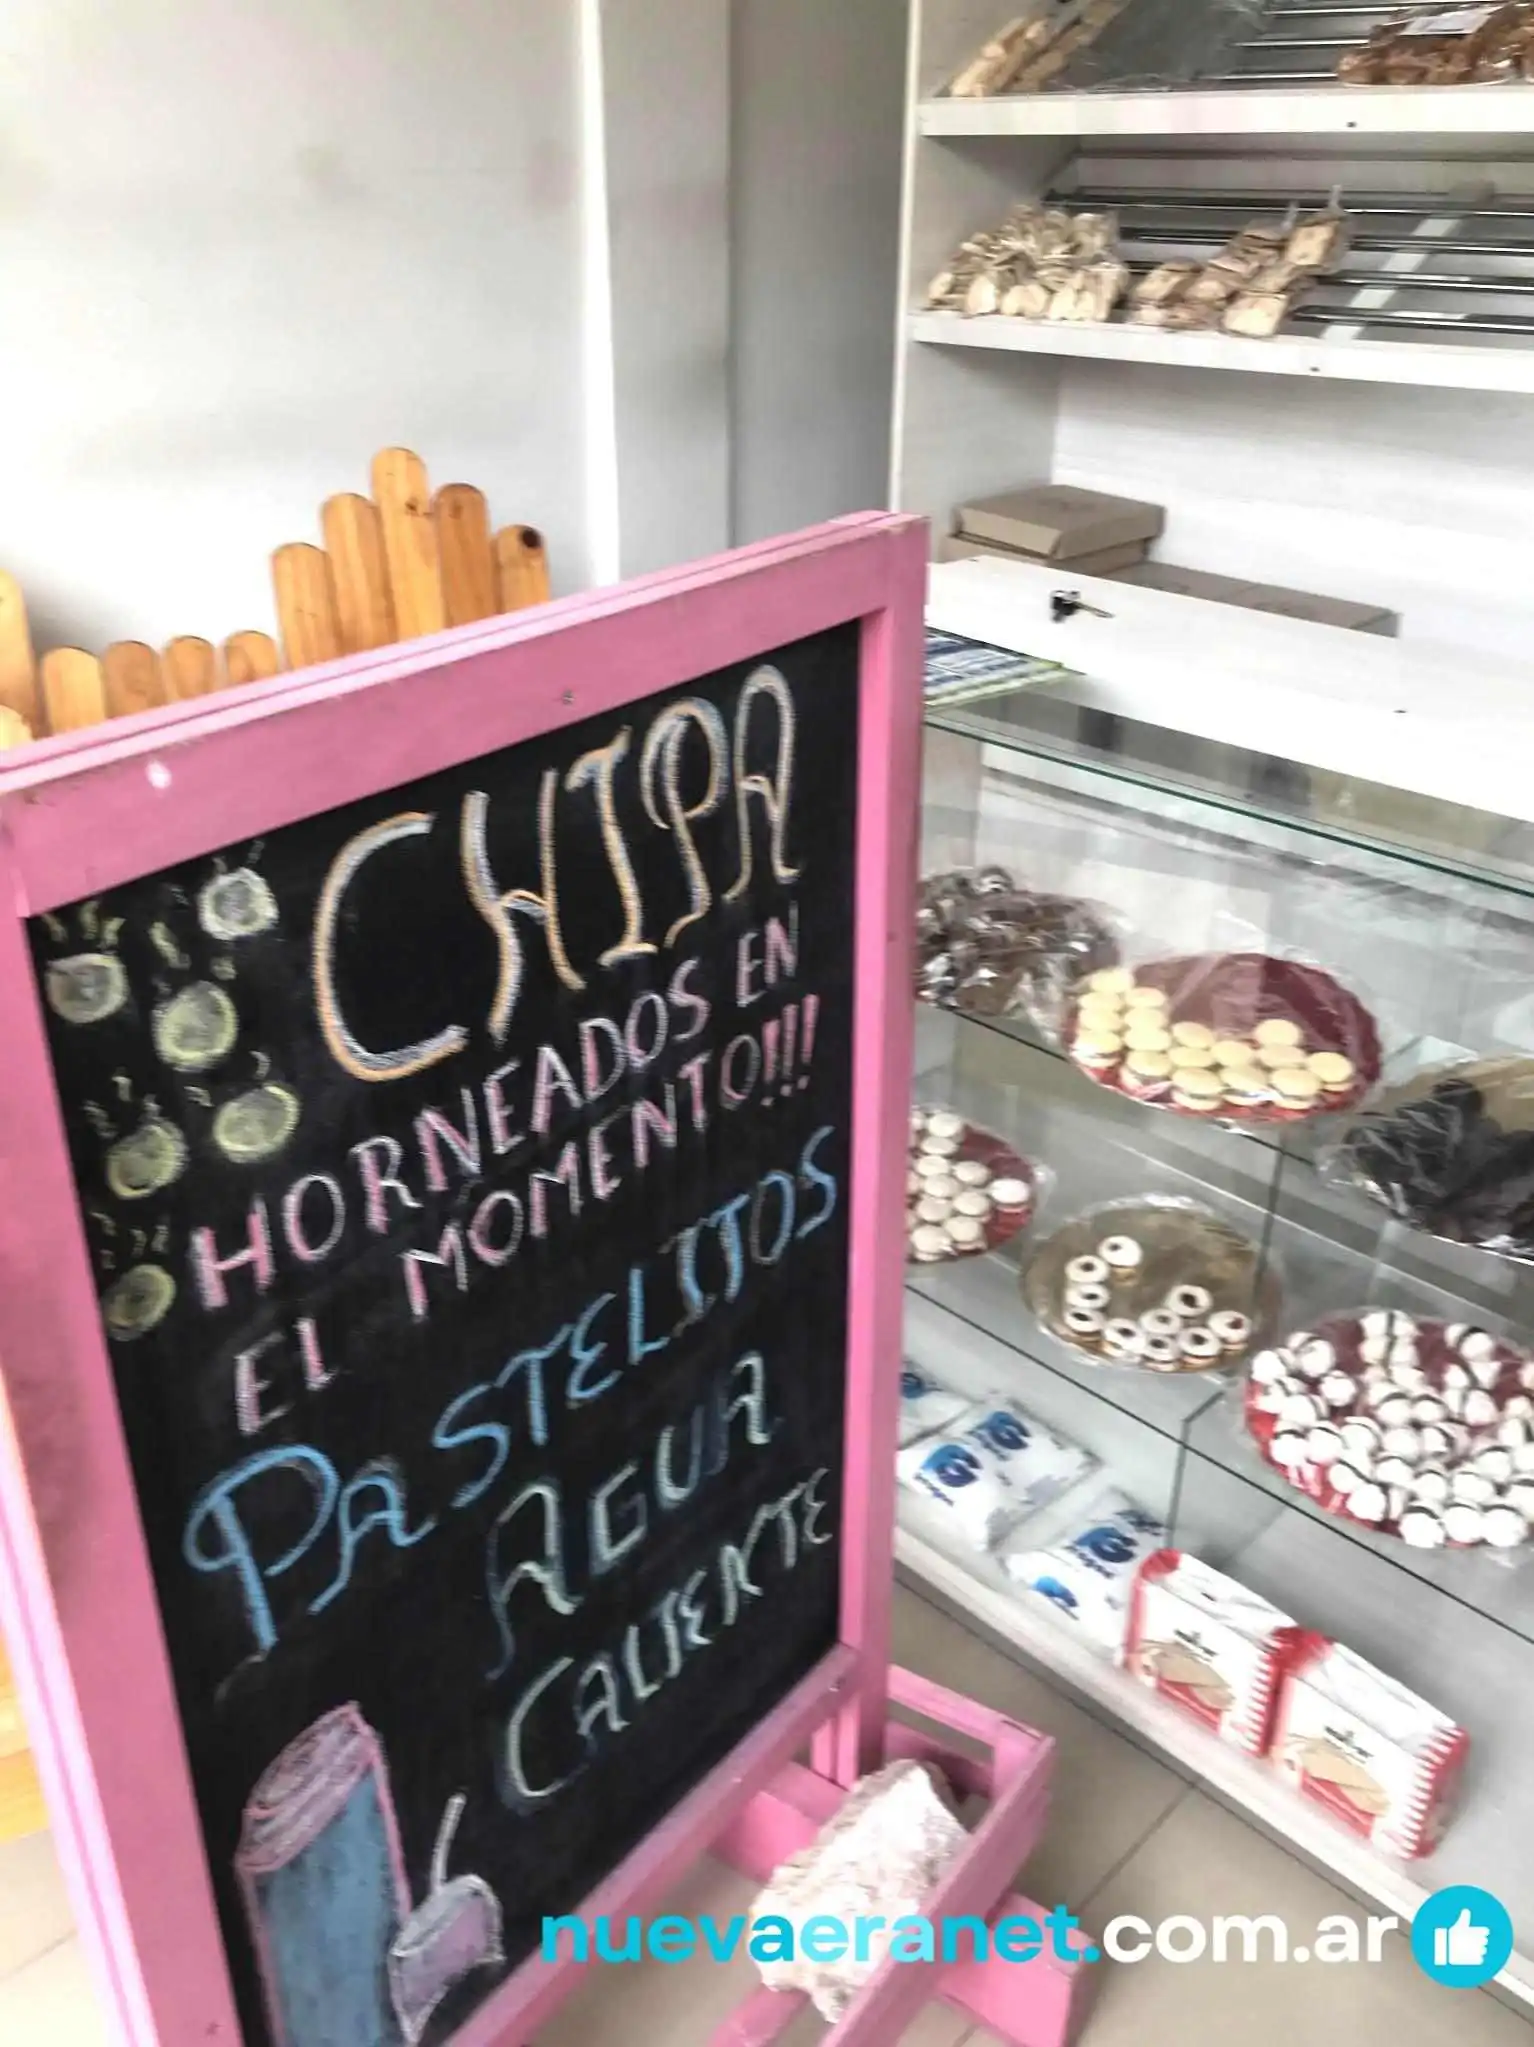 CHIPA
HORNEADOS EN
EL MOMENTO!!!
PASTELITOS
AGUA
CALIENTE
nuevaeranet.com.ar